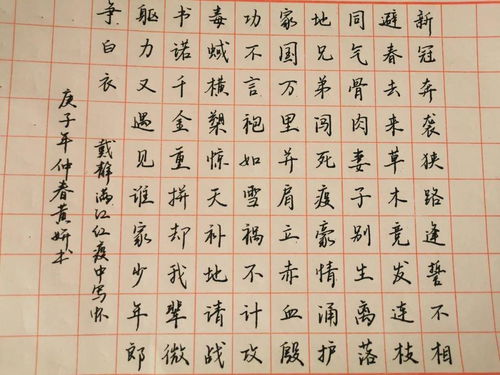 新冠奔袭狭路逢誓不相
避春去来草木竟发连枝
同气骨肉妻子别生离落
地兄弟闯死疫豪情涌护
家国万里并肩立赤血殷
功不言袍如雪祸不计攻
毒蜮横槊惊天补地请战
书诺千金重拼却我辈微
躯力又遇见谁家少年郎
争白衣
戴静满江红疫中写怀
庚子年仲春黄妍书